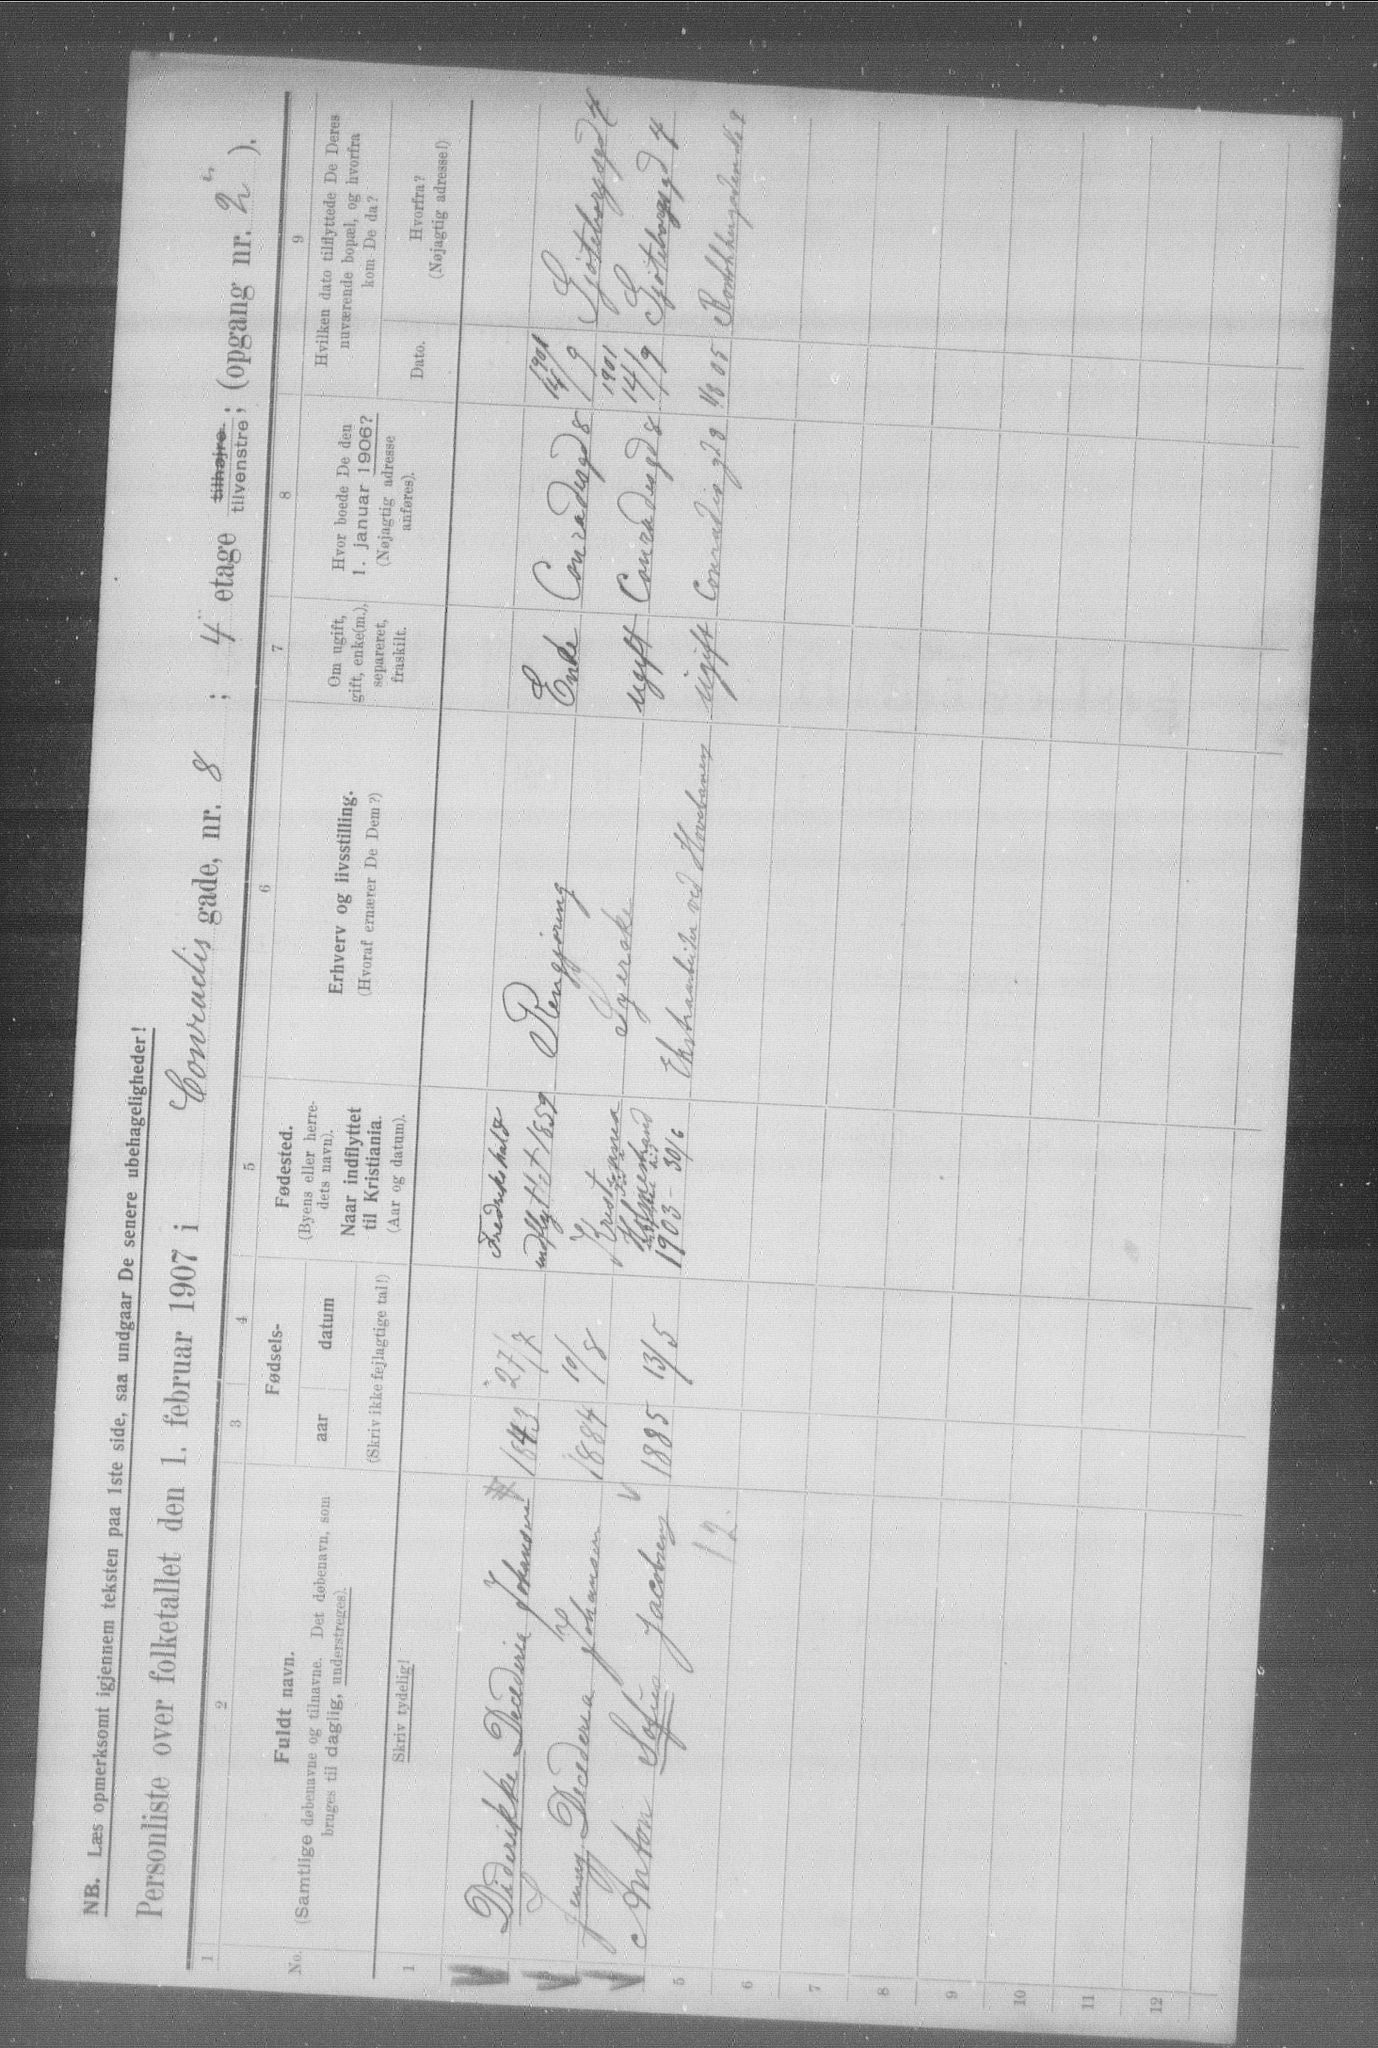 NB. Læs opmerksomt igjennem teksten paa 1ste side, saa undgaar De senere ubehageligheder!
Personliste over folketallet den 1. februar 1907 i Conradis gade, nr. 8 ; 4 etage tilhøjre tilvenstre; (opgang nr. 2 ).
1 2 3 4 5 6 7 8 9
No.
Fuldt navn.
(Samtlige døbenavne og tilnavne. Det døbenavn, som
bruges til daglig, understreges).
Skriv tydelig!
Fødsels-
aar datum
(Skriv ikke fejlagtige tal!)
Fødested.
(Byens eller herre-
dets navn).
Naar indflyttet
til Kristiania.
(Aar og datum).
Erhverv og livsstilling.
(Hvoraf ernærer De Dem?)
Om ugift,
gift, enke(m.),
separeret,
fraskilt.
Hvor boede De den
1. januar 1906?
(Nøjagtig adresse
anføres).
Hvilken dato tilflyttede De Deres
nuværende bopæl, og hvorfra
kom De da?
Dato.
Hvorfra?
(Nøjagtig adresse!)
1
Diderikke Dedæria Johansen 1843 27/7 Fredrikshald indflyttet 1859 Rengjøring Enke Conradisgd 8 1901 14/9 Gjøteborggd 4
Jenny Dedæria Johansen 1884 10/8 Kristiania Syerske ugift Conradisgd 8 1901 14/9 Gjøteborggd 4
Anton Sofus Jacobsen 1885 13/5 Holmestrand 1903 - 30/6 Ekstraarbeider ved Hovedbanen Ugift Conradis gd 8 1/8 05
12.
5
6
7
8
9
10
11
12